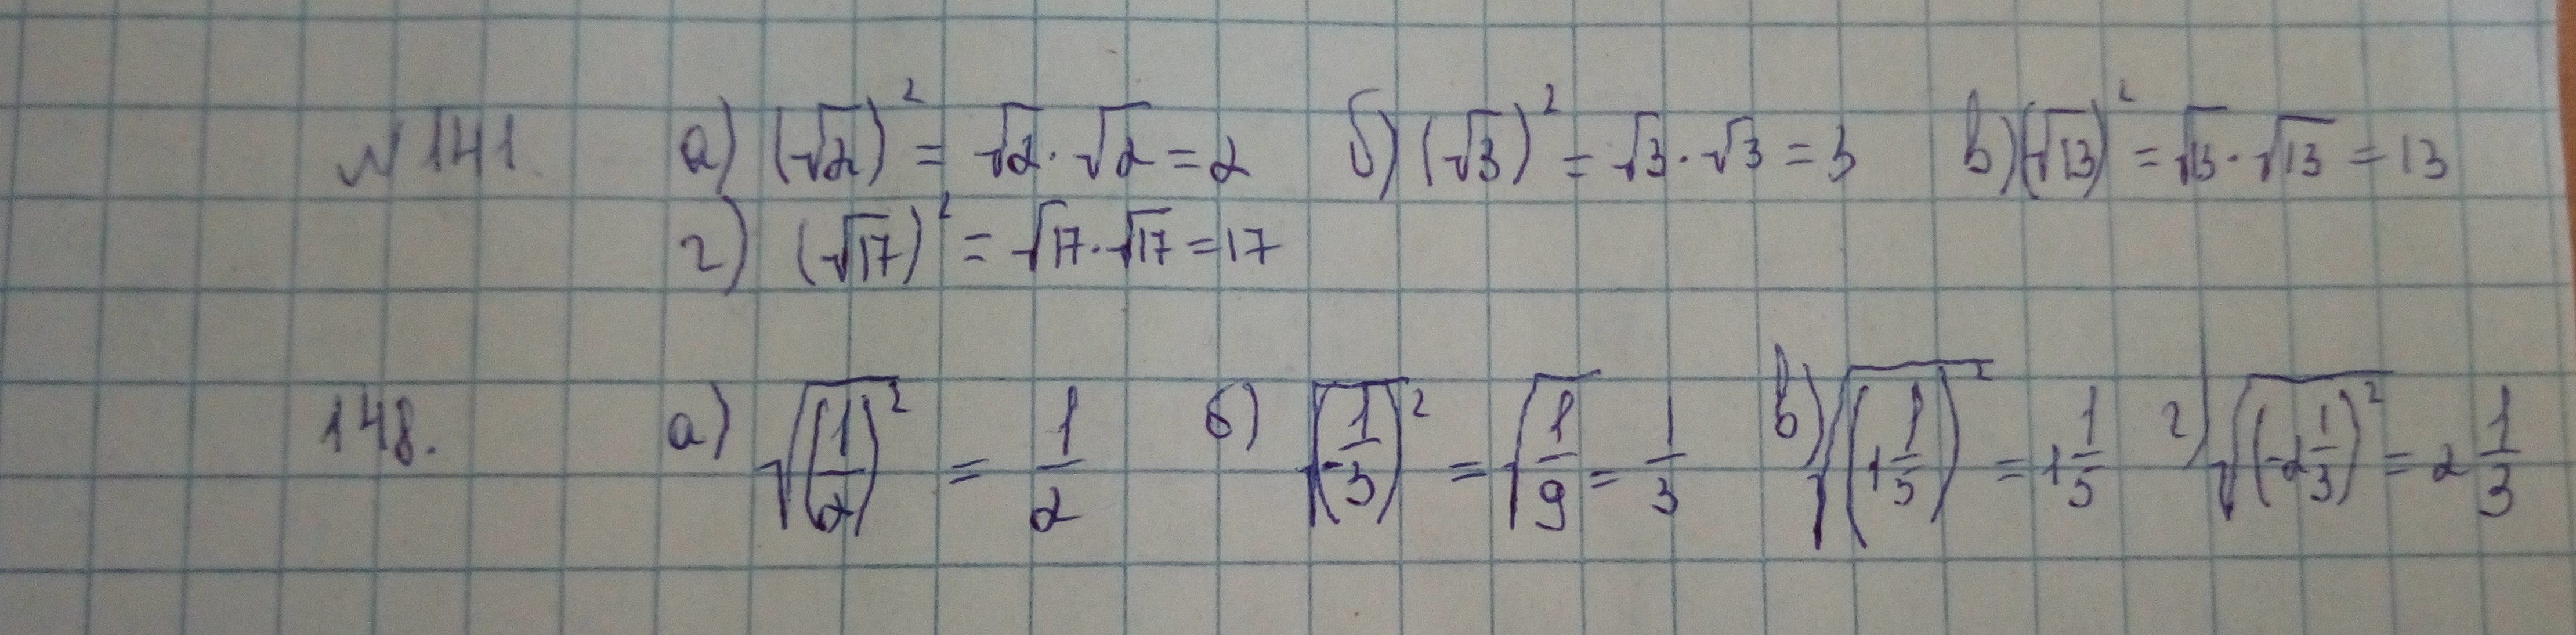 N 141. а) (√2)² = √2 · √2 = 2 б) (√3)² = √3 · √3 = 3 в) (√13)² = √13 · √13 = 13
г) (√17)² = √17 · √17 = 17
148. а) √(1/2)² = 1/2 б) √(-1/3)² = √1/9 = 1/3 в) √(1 1/5)² = 1 1/5 г) √(-2 1/3)² = 2 1/3